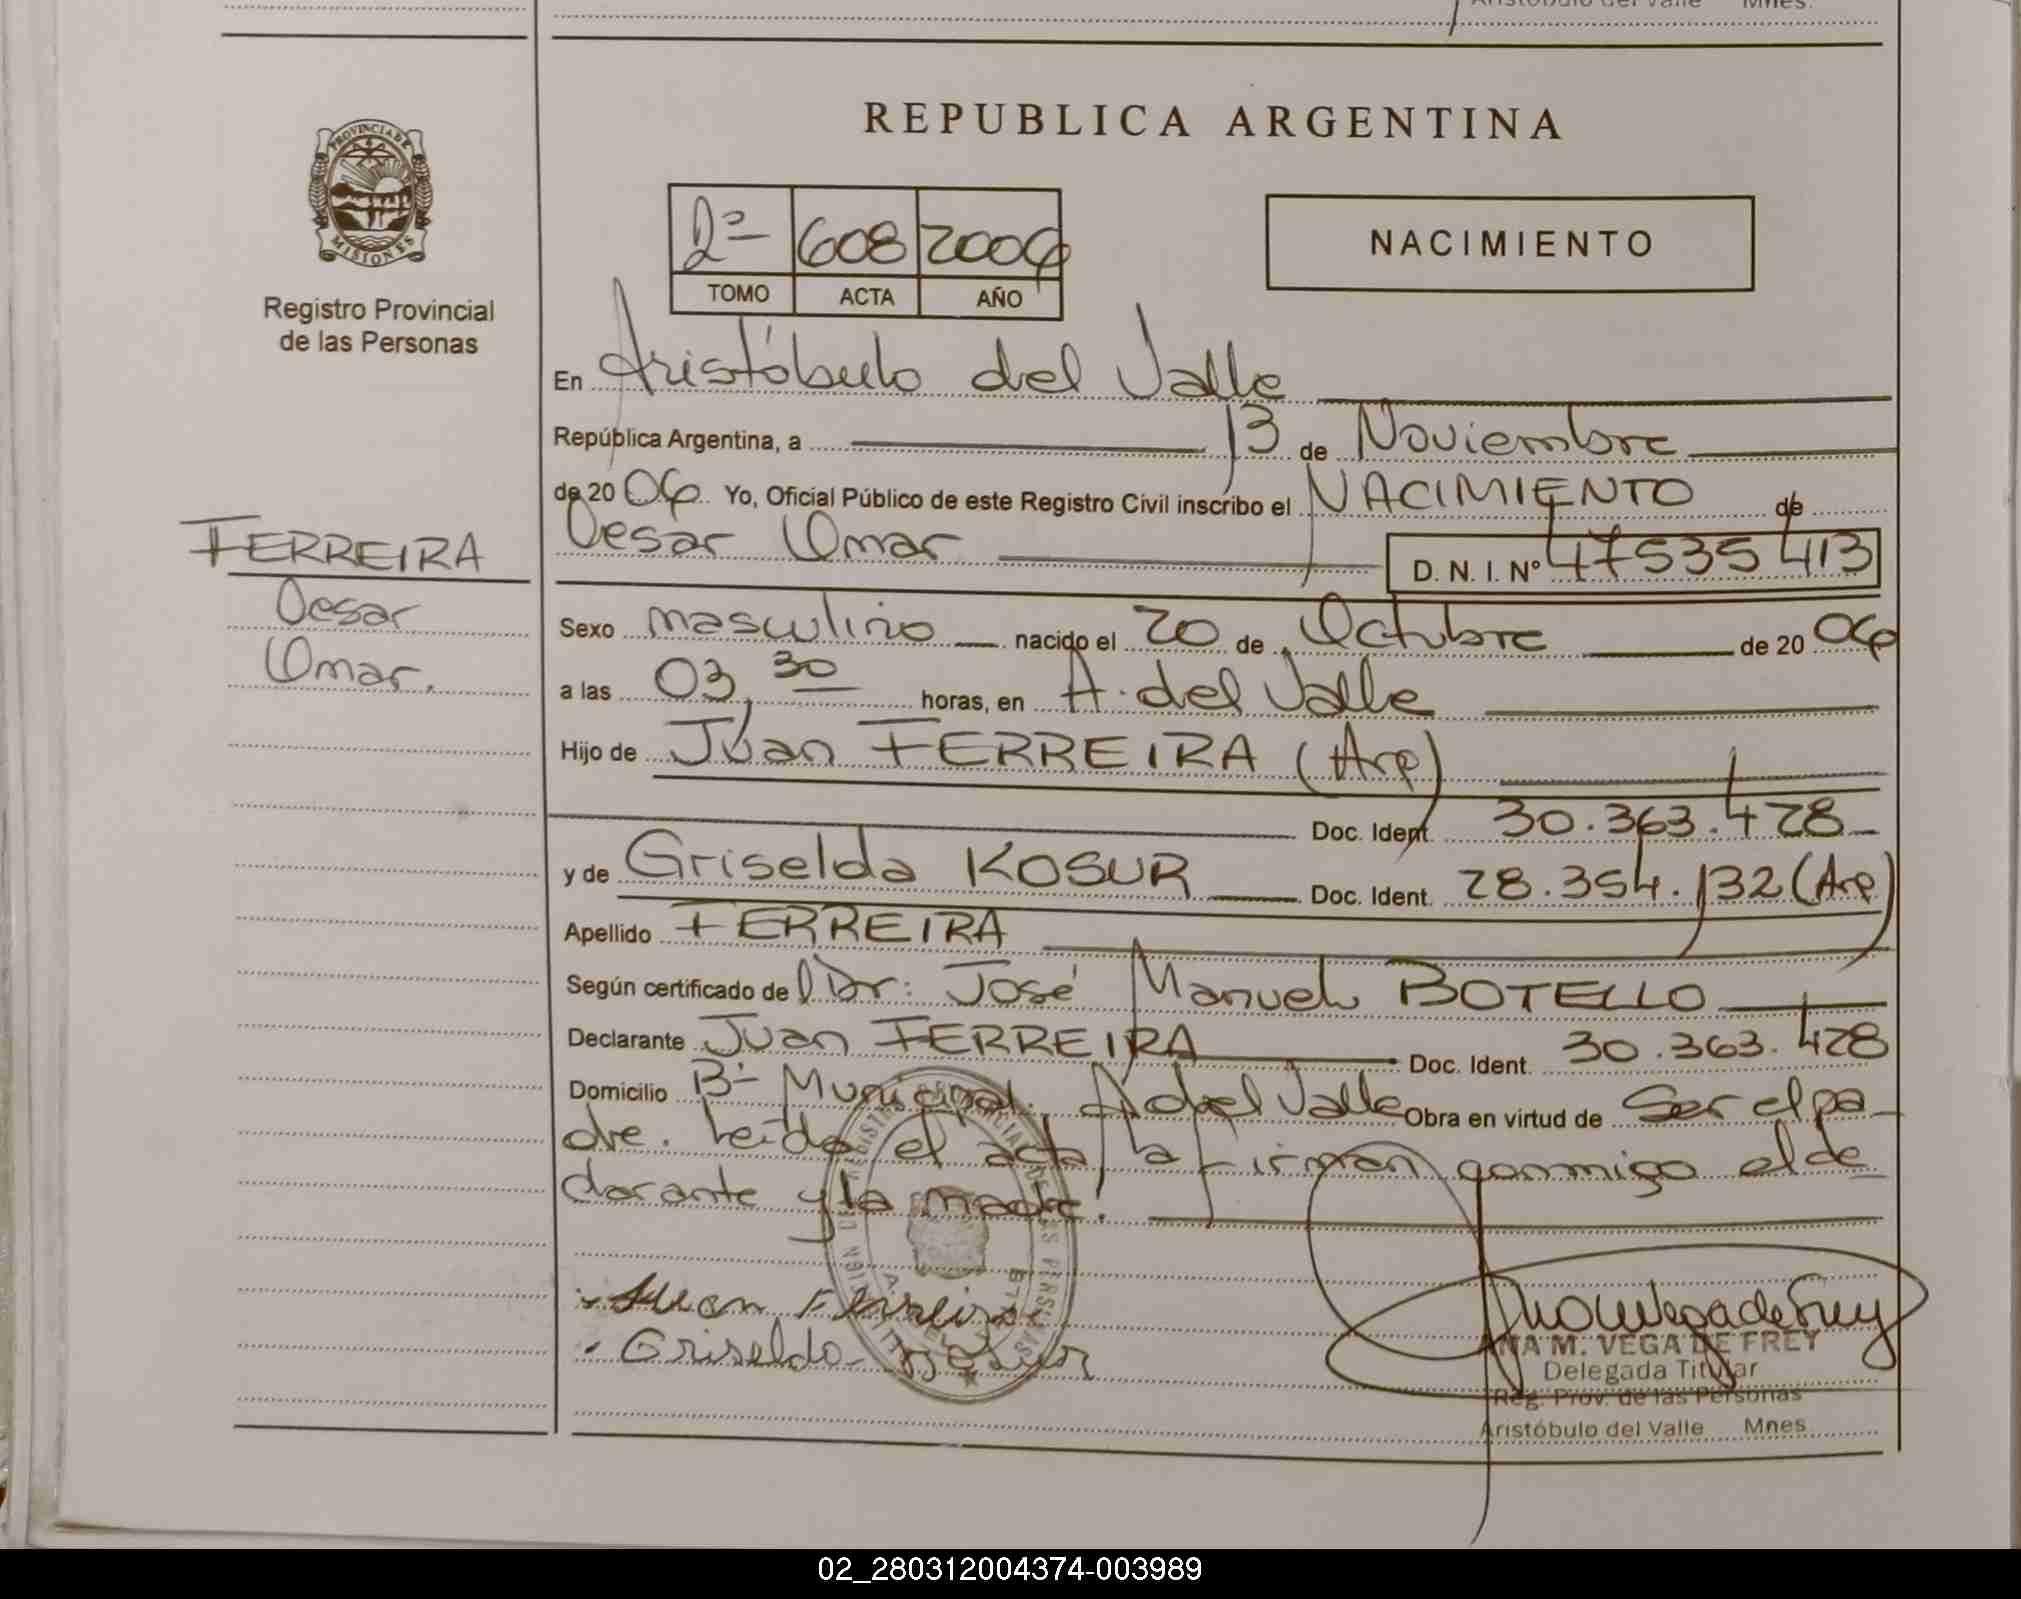 Aristóbulo del Valle Mnes.
REPUBLICA ARGENTINA
PROVINCIA DE
MISIONES
Registro Provincial
de las Personas
2º 608 2006
TOMO ACTA AÑO
NACIMIENTO
En Aristóbulo del Valle
República Argentina, a 13 de Noviembre
de 20 06 Yo, Oficial Público de este Registro Civil inscribo el NACIMIENTO de
Cesar Omar D. N. I. Nº 47535413
FERREIRA
Cesar
Omar.
Sexo masculino nacido el 20 de Octubre de 20 06
a las 03,30 horas, en A. del Valle
Hijo de Juan FERREIRA (Arg)
Doc. Ident. 30.363.428
y de Griselda KOSUR Doc. Ident. 28.354.132 (Arg)
Apellido FERREIRA
Según certificado de l Dr: José Manuel BOTELLO
Declarante Juan FERREIRA Doc. Ident. 30.363.428
Domicilio Bº Municipal, A del Valle Obra en virtud de Ser el pa-
dre. Leída el acta, la firman conmigo el de
clarante y la madre.
Juan Ferreira
Griselda Kosur
ANA M. VEGA DE FREY
Delegada Titular
Reg. Prov. de las Personas
Aristóbulo del Valle Mnes
02_280312004374-003989